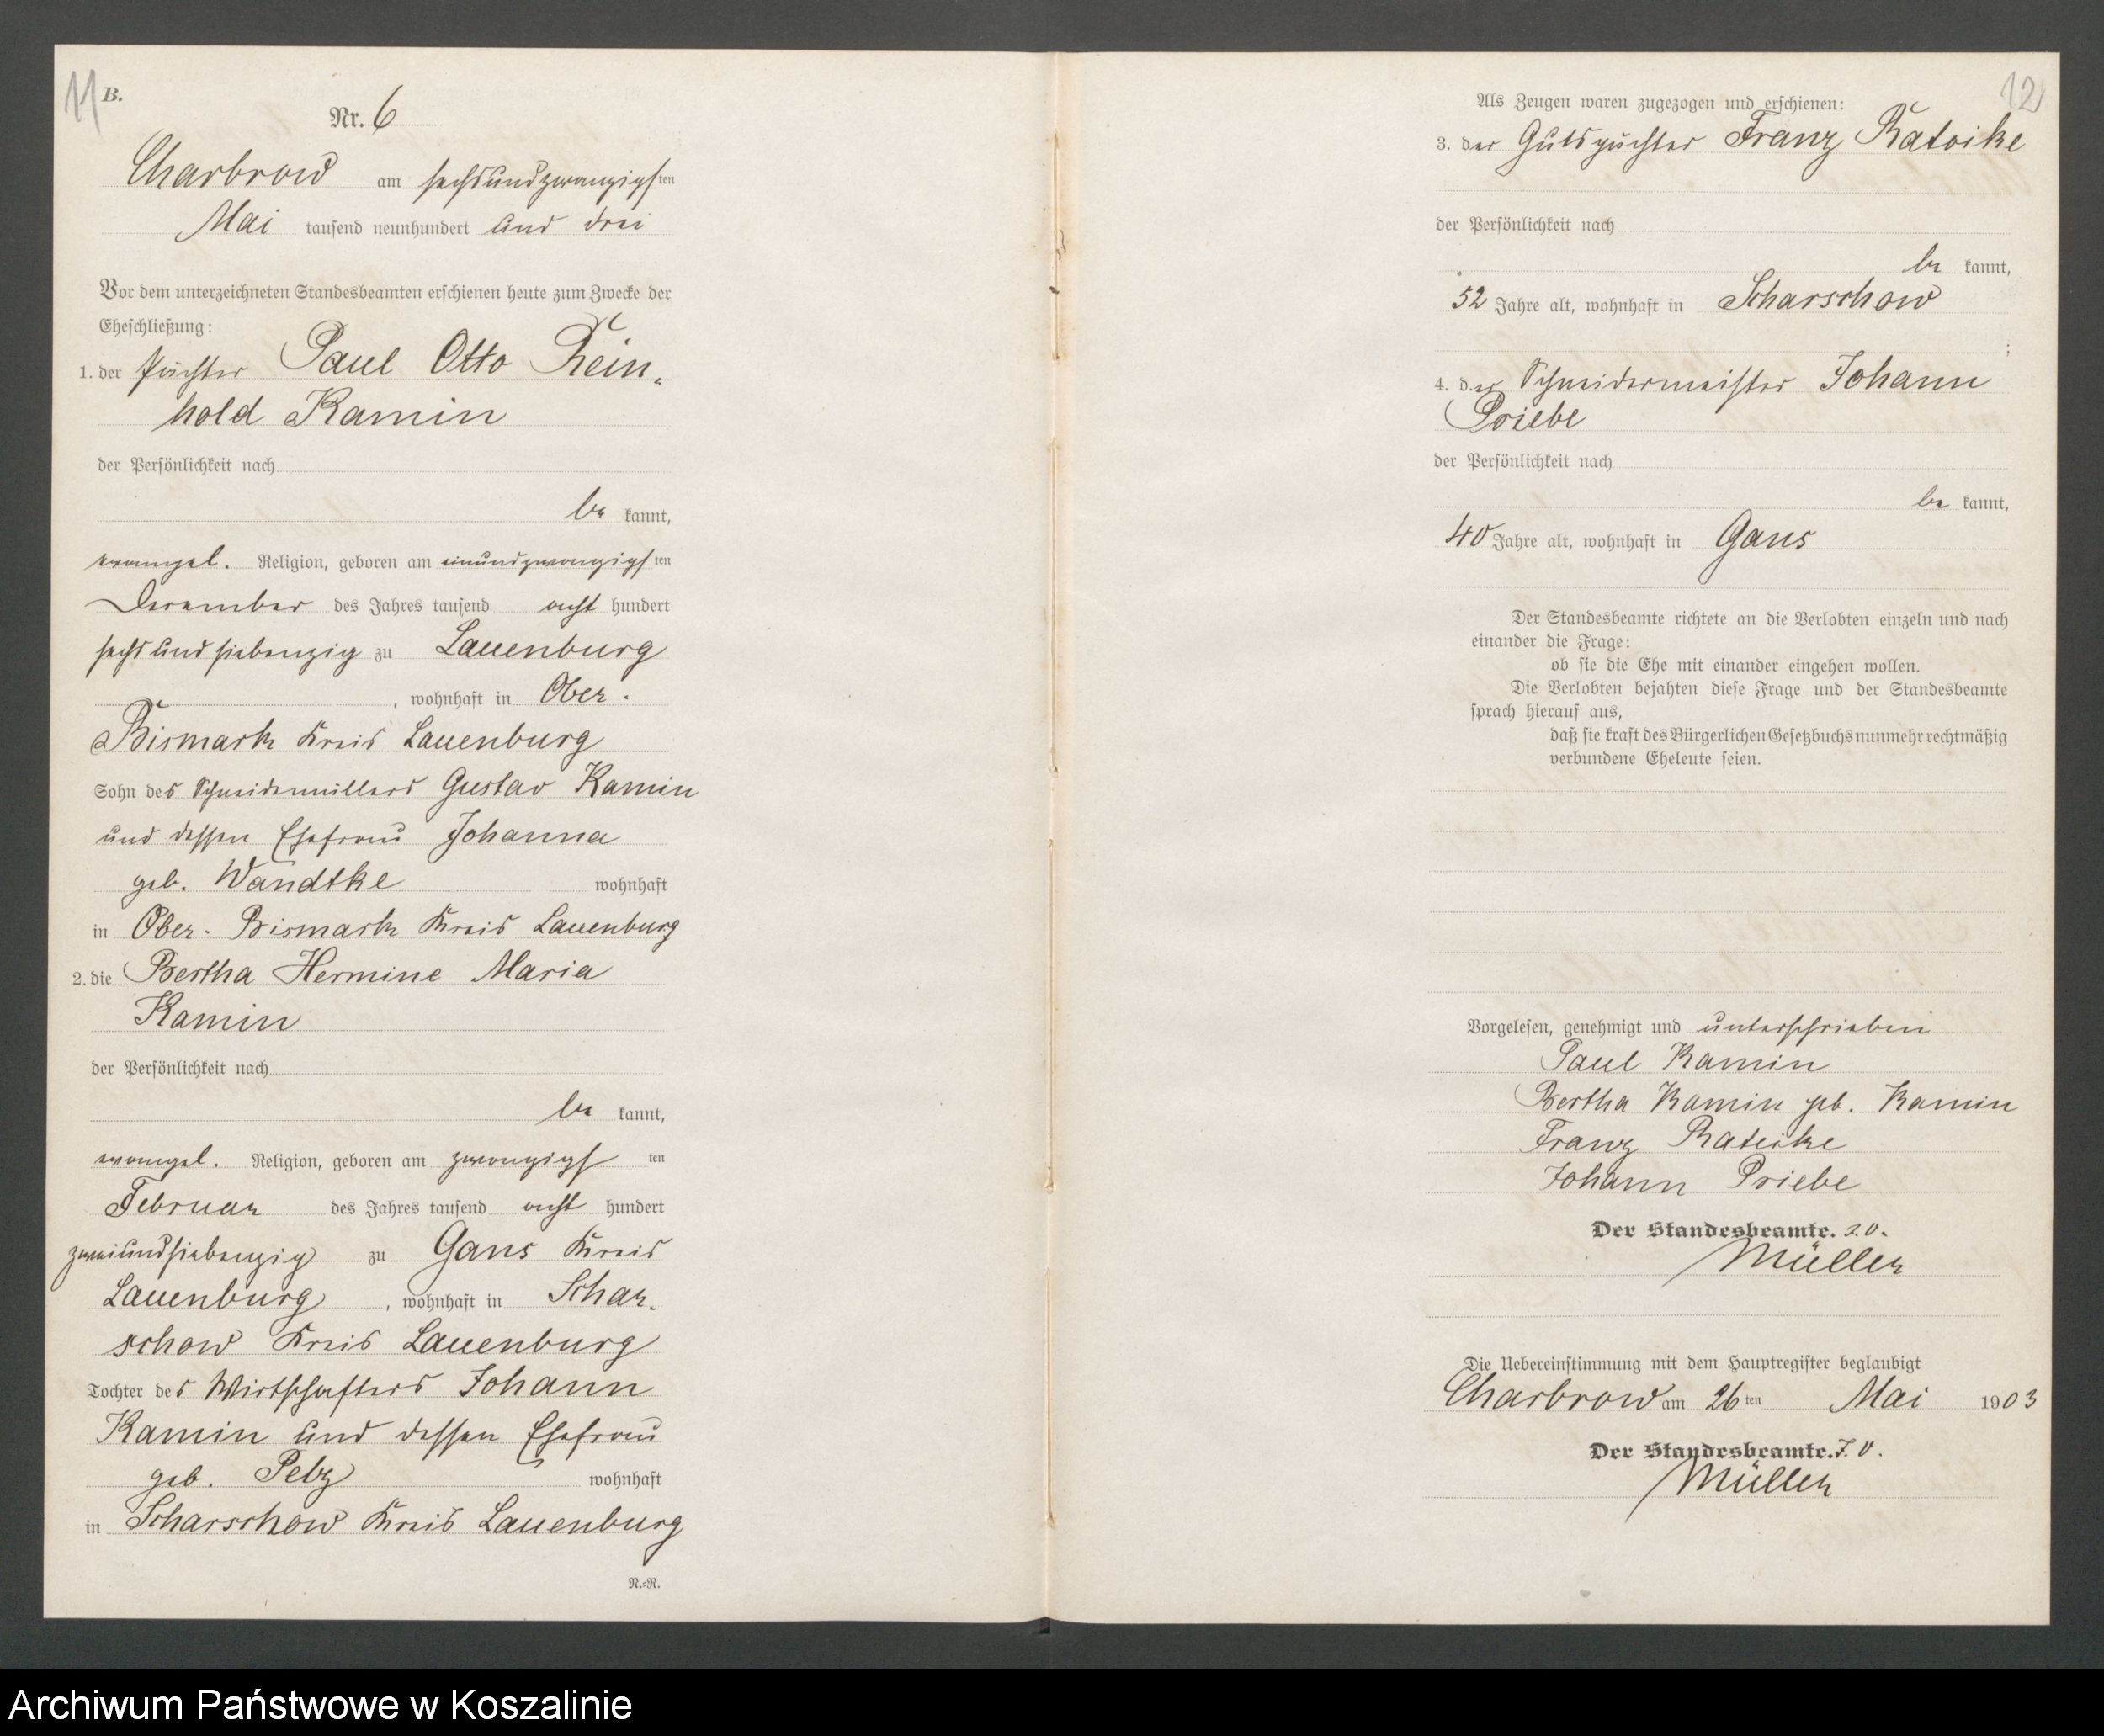 11
B.
Nr. 6
Charbrow am sechsundzwanzigsten
Mai tausend neunhundert und drei
Vor dem unterzeichneten Standesbeamten erschienen heute zum Zwecke der
Eheschließung:
1. der Pächter Paul Otto Rein-
hold Kamin
der Persönlichkeit nach
be kannt,
evangel. Religion, geboren am einundzwanzigsten
Dezember des Jahres tausend acht hundert
sechs und siebenzig zu Lauenburg
, wohnhaft in Ober-
Bismark Kreis Lauenburg
Sohn des Schneidemüllers Gustav Kamin
und dessen Ehefrau Johanna
geb. Wandtke wohnhaft
in Ober-Bismark Kreis Lauenburg
2. die Bertha Hermine Maria
Kamin
der Persönlichkeit nach
be kannt,
evangel. Religion, geboren am zwanzigsten
Februar des Jahres tausend acht hundert
zweiundsiebenzig zu Gans Kreis
Lauenburg, wohnhaft in Schar-
schow Kreis Lauenburg
Tochter des Wirtschafters Johann
Kamin und dessen Ehefrau
geb. Pelz wohnhaft
in Scharschow Kreis Lauenburg
N.=R.
12
Als Zeugen waren zugezogen und erschienen:
3. der Gutspächter Franz Rateike
der Persönlichkeit nach
be kannt,
52 Jahre alt, wohnhaft in Scharschow
;
4. der Schneidermeister Johann
Priebe
der Persönlichkeit nach
be kannt,
40 Jahre alt, wohnhaft in Gans
Der Standesbeamte richtete an die Verlobten einzeln und nach
einander die Frage:
ob sie die Ehe mit einander eingehen wollen.
Die Verlobten bejahten diese Frage und der Standesbeamte
sprach hierauf aus,
daß sie kraft des Bürgerlichen Gesetzbuchs nunmehr rechtmäßig
verbundene Eheleute seien.
Vorgelesen, genehmigt und unterschrieben
Paul Kamin
Bertha Kamin geb. Kamin
Franz Rateike
Johann Priebe
Der Standesbeamte. J.V.
Müller
Die Uebereinstimmung mit dem Hauptregister beglaubigt
Charbrow am 26ten Mai 1903
Der Standesbeamte. J.V.
Müller
Archiwum Państwowe w Koszalinie